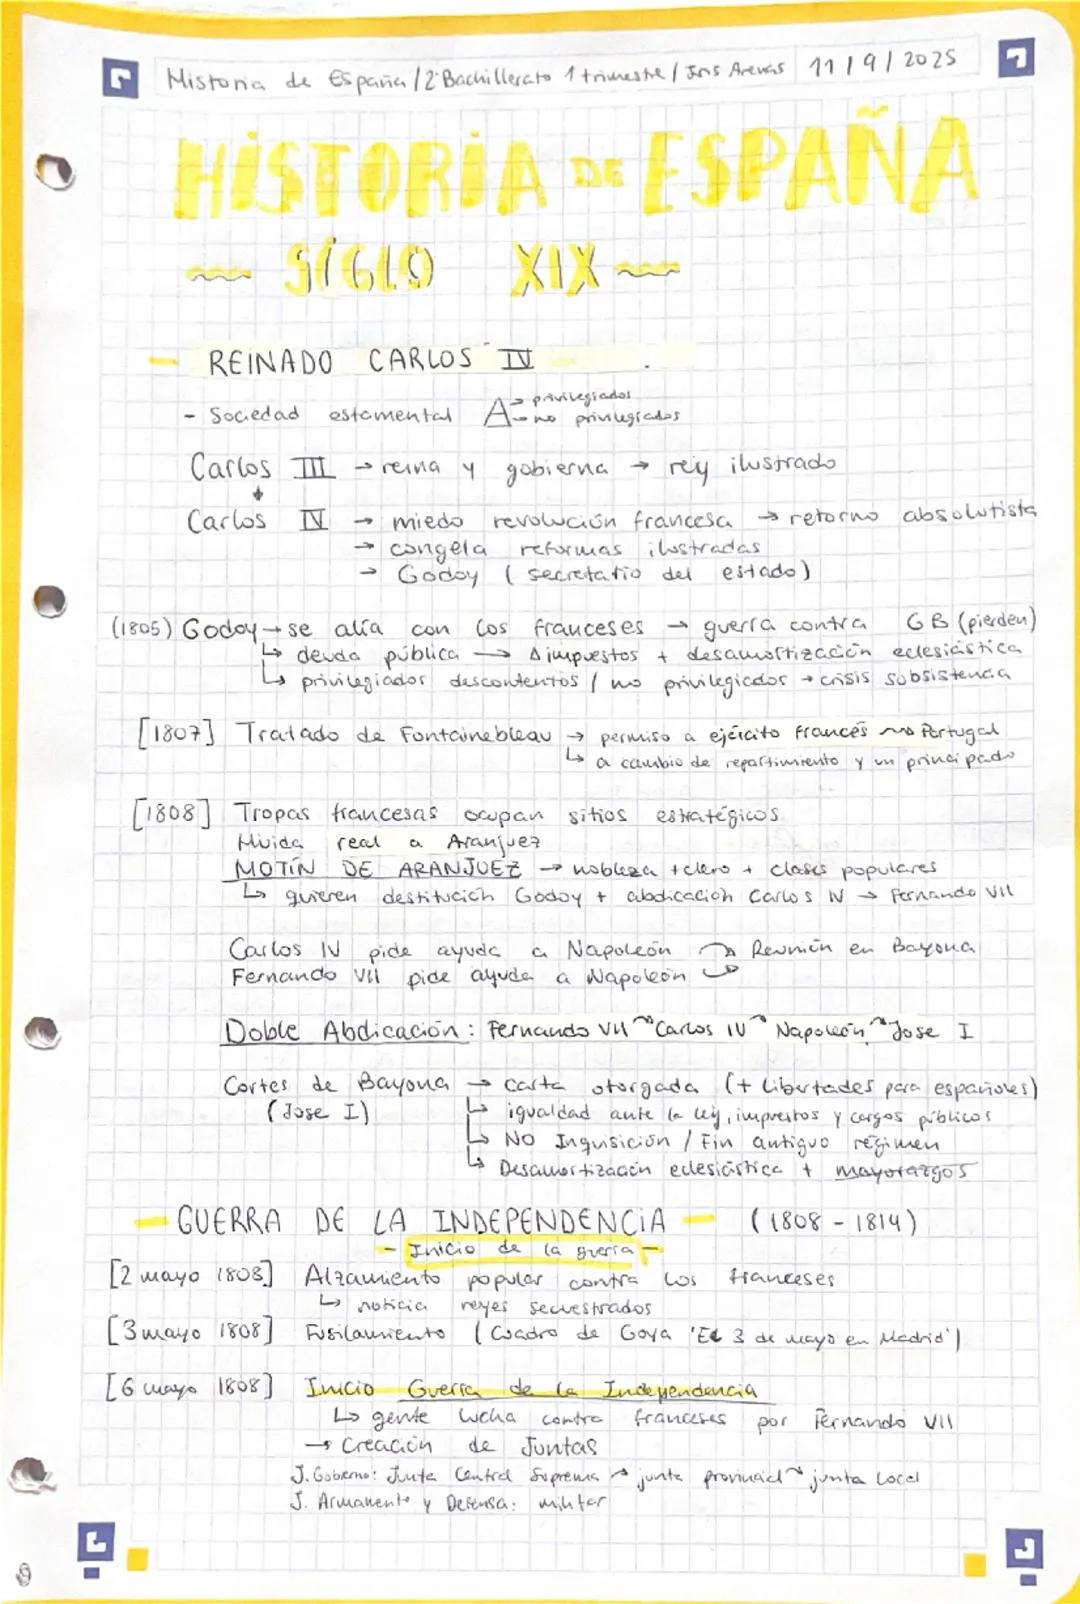 Historia de España / 2º Bachillerato 1 trimestre / Iris Arenas 11/9/2025
HISTORIA DE ESPAÑA
SIGLO XIX
REINADO CARLOS IV
- Sociedad estamental → privilegiados
→ no privilegiados
Carlos III → reina y gobierna → rey ilustrado
Carlos IV → miedo revolución francesa → retorno absolutista
→ congela reformas ilustradas
→ Godoy (secretario del estado)
(1805) Godoy → se alía con los franceses → guerra contra GB (pierden)
↳ deuda pública → Δ impuestos + desamortización eclesiástica
↳ privilegiados descontentos / no privilegiados → crisis subsistencia
[1807] Tratado de Fontainebleau → permiso a ejército francés ⇝ Portugal
↳ a cambio de repartimiento y un principado
[1808] Tropas francesas ocupan sitios estratégicos
Huida real a Aranjuez
MOTÍN DE ARANJUEZ → nobleza + clero + clases populares
↳ quieren destitución Godoy + abdicación Carlos IV → Fernando VII
Carlos IV pide ayuda a Napoleón → Reunión en Bayona
Fernando VII pide ayuda a Napoleón
Doble Abdicación: Fernando VII ⇝ Carlos IV ⇝ Napoleón ⇝ Jose I
Cortes de Bayona → carta otorgada (+ libertades para españoles)
(Jose I) ↳ igualdad ante la ley, impuestos y cargos públicos
↳ NO Inquisición / Fin antiguo régimen
↳ Desamortización eclesiástica + mayorazgos
GUERRA DE LA INDEPENDENCIA (1808 - 1814)
- Inicio de la guerra -
[2 mayo 1808] Alzamiento popular contra los franceses
↳ noticia reyes secuestrados
[3 mayo 1808] Fusilamiento (Cuadro de Goya 'El 3 de mayo en Madrid')
[6 mayo 1808] Inicio Guerra de la Independencia
↳ gente lucha contra franceses por Fernando VII
→ Creación de Juntas
J. Gobierno: Junta Central Suprema ⇝ junta provincial ⇝ junta local
J. Armamento y Defensa: militar